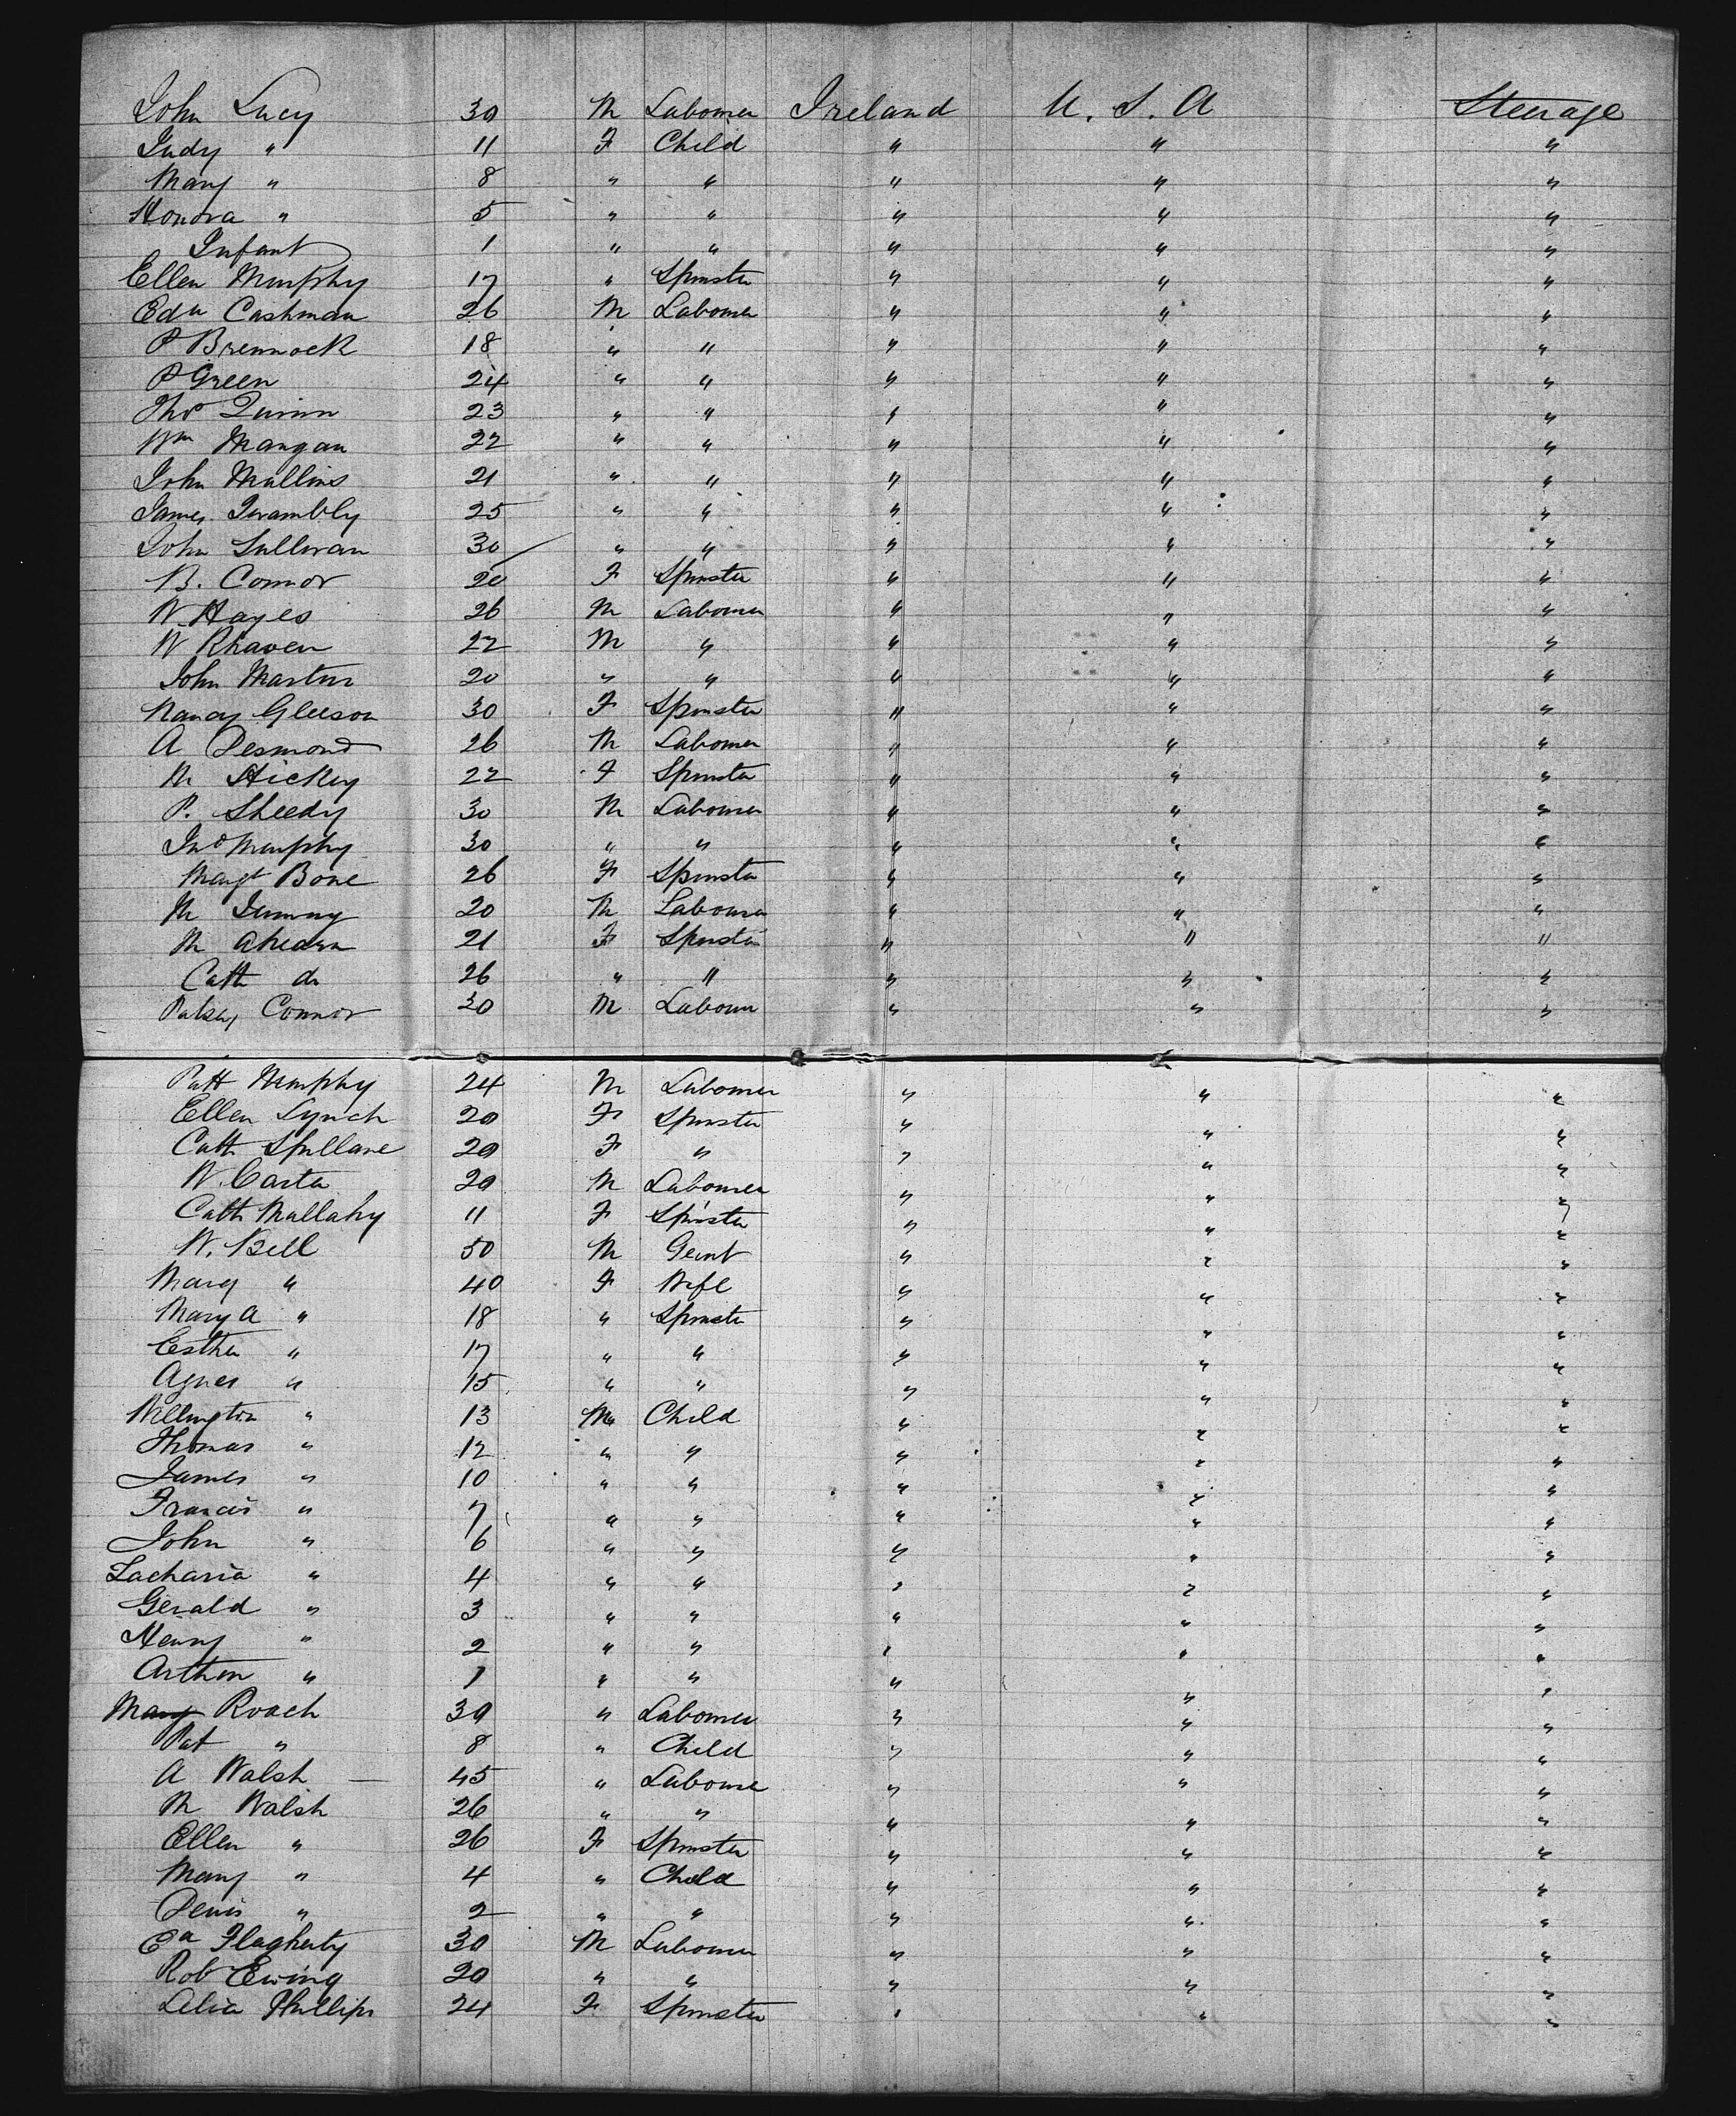 John Lucy 30 M Labourer Ireland U. S. A Steerage
Judy " 11 F Child " " "
Mary " 8 " " " " "
Honora " 5 " " " " "
Infant 1 " " " " "
Ellen Murphy 17 " Spinster " " "
Edw Cashman 26 M Labourer " " "
P Brennock 18 " " " " "
P Green 24 " " " " "
Thos Quinn 23 " " " " "
Wm Mangan 22 " " " " "
John Mullins 21 " " " " "
James Twambly 25 " " " " "
John Sullivan 30 " " " " "
B. Connor 20 F Spinster " " "
W. Hayes 26 M Labourer " " "
W Rhaven 22 M " " " "
John Martin 20 " " " " "
Nancy Gleeson 30 F Spinster " " "
A Desmond 26 M Labourer " " "
M Hickey 22 F Spinster " " "
P. Sheedy 30 M Labourer " " "
Jno Murphy 30 " " " " "
Margt Bone 26 F Spinster " " "
M 20 M Labourer " " "
M Ahearn 21 F Spinster " " "
Cath do 26 " " " " "
Patsey Connor 30 M Labourer " " "
Patt Murphy 24 M Labourer " " "
Ellen Lynch 20 F Spinster " " "
Cath Spillane 20 F " " " "
W. Carter 20 M Labourer " " "
Cath Mullahy 11 F Spinster " " "
W. Bell 50 M Gent " " "
Mary " 40 F Wife " " "
Mary A " 18 " Spinster " " "
Esther " 17 " " " " "
Agnes " 15 " " " " "
Wellington " 13 M Child " " "
Thomas " 12 " " " " "
James " 10 " " " " "
Francis " 7 " " " " "
John " 6 " " " " "
Zacharia " 4 " " " " "
Gerald " 3 " " " " "
Henry " 2 " " " " "
Arthur " 1 " " " " "
Mary Roach 30 " Labourer " " "
Pat " 8 " Child " " "
A Walsh — 45 " Labourer " " "
M Walsh 26 " " " " "
Ellen " 26 F Spinster " " "
Mary " 4 " Child " " "
Denis " 2 " " " " "
Flagherty 30 M Labourer " " "
Robt Ewing 20 " " " " "
Lelia Phillips 24 F Spinster " " "